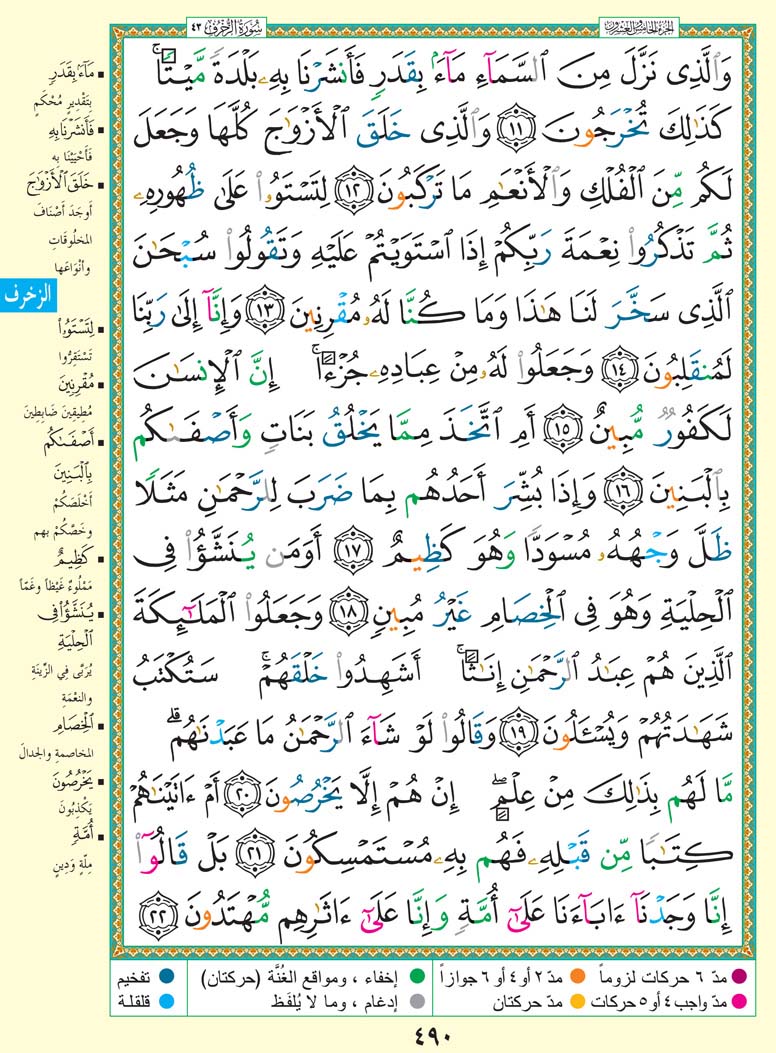 سُورَةُ الزُّخْرُفِ ٤٣
الجزء الخامس والعشرون
وَالَّذِى نَزَّلَ مِنَ السَّمَآءِ مَآءًۢ بِقَدَرٍ فَأَنشَرْنَا بِهِۦ بَلْدَةً مَّيْتًاۚ
كَذَٰلِكَ تُخْرَجُونَ ﴿١١﴾ وَالَّذِى خَلَقَ الْأَزْوَٰجَ كُلَّهَا وَجَعَلَ
لَكُم مِّنَ الْفُلْكِ وَالْأَنْعَٰمِ مَا تَرْكَبُونَ ﴿١٢﴾ لِتَسْتَوُۥا۟ عَلَىٰ ظُهُورِهِۦ
ثُمَّ تَذْكُرُوا۟ نِعْمَةَ رَبِّكُمْ إِذَا اسْتَوَيْتُمْ عَلَيْهِ وَتَقُولُوا۟ سُبْحَٰنَ
الَّذِى سَخَّرَ لَنَا هَٰذَا وَمَا كُنَّا لَهُۥ مُقْرِنِينَ ﴿١٣﴾ وَإِنَّآ إِلَىٰ رَبِّنَا
لَمُنقَلِبُونَ ﴿١٤﴾ وَجَعَلُوا۟ لَهُۥ مِنْ عِبَادِهِۦ جُزْءًاۚ إِنَّ الْإِنسَٰنَ
لَكَفُورٌ مُّبِينٌ ﴿١٥﴾ أَمِ اتَّخَذَ مِمَّا يَخْلُقُ بَنَاتٍ وَأَصْفَىٰكُم
بِالْبَنِينَ ﴿١٦﴾ وَإِذَا بُشِّرَ أَحَدُهُم بِمَا ضَرَبَ لِلرَّحْمَٰنِ مَثَلًا
ظَلَّ وَجْهُهُۥ مُسْوَدًّا وَهُوَ كَظِيمٌ ﴿١٧﴾ أَوَمَن يُنَشَّؤُا۟ فِى
الْحِلْيَةِ وَهُوَ فِى الْخِصَامِ غَيْرُ مُبِينٍ ﴿١٨﴾ وَجَعَلُوا۟ الْمَلَٰٓئِكَةَ
الَّذِينَ هُمْ عِبَٰدُ الرَّحْمَٰنِ إِنَٰثًاۚ أَشَهِدُوا۟ خَلْقَهُمْۚ سَتُكْتَبُ
شَهَٰدَتُهُمْ وَيُسْـَٔلُونَ ﴿١٩﴾ وَقَالُوا۟ لَوْ شَآءَ الرَّحْمَٰنُ مَا عَبَدْنَٰهُمۗ
مَّا لَهُم بِذَٰلِكَ مِنْ عِلْمٍۖ إِنْ هُمْ إِلَّا يَخْرُصُونَ ﴿٢٠﴾ أَمْ ءَاتَيْنَٰهُمْ
كِتَٰبًا مِّن قَبْلِهِۦ فَهُم بِهِۦ مُسْتَمْسِكُونَ ﴿٢١﴾ بَلْ قَالُوٓا۟
إِنَّا وَجَدْنَآ ءَابَآءَنَا عَلَىٰٓ أُمَّةٍ وَإِنَّا عَلَىٰٓ ءَاثَٰرِهِم مُّهْتَدُونَ ﴿٢٢﴾
مَآءًۢ بِقَدَرٍ
بِتَقْدِيرٍ مُحْكَمٍ
فَأَنشَرْنَا بِهِ
فَأَحْيَيْنَا بِهِ
خَلَقَ الْأَزْوَٰجَ
أَوجَدَ أَصْنَافَ
المخلُوقَاتِ
وأَنْوَاعَها
الزخرف
لِتَسْتَوُۥا۟
تَسْتَقِرُّوا
مُقْرِنِينَ
مُطِيقِينَ ضَابِطِينَ
أَصْفَىٰكُم
بِالْبَنِينَ
أَخْلَصَكُمْ
وخَصَّكُمْ بهم
كَظِيمٌ
مَمْلُوءٌ غَيْظاً وغَمّاً
يُنَشَّؤُا۟ فِى
الْحِلْيَةِ
يُرَبَّى فِي الزِّينَةِ
والنعْمَةِ
الْخِصَامِ
المخاصمةِ والجدالِ
يَخْرُصُونَ
يَكْذِبُونَ
أُمَّةٍ
مِلَّةٍ ودِينٍ
مدّ ٦ حركات لزوماً
مدّ ٢ أو ٤ أو ٦ جوازاً
إخفاء ، ومواقع الغُنَّة (حركتان)
تفخيم
مدّ واجب ٤ أو ٥ حركات
مدّ حركتان
إدغام ، وما لا يُلفَظ
قلقلة
٤٩٠